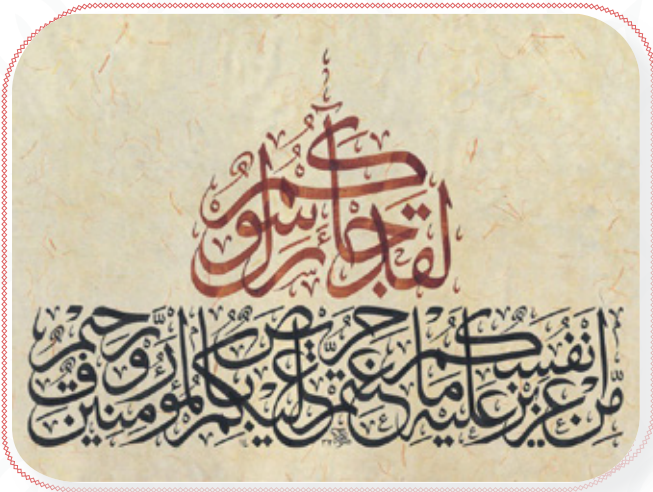 لقد جاءكم رسول
من أنفسكم عزيز عليه ما عنتم حريص عليكم بالمؤمنين رؤوف رحيم